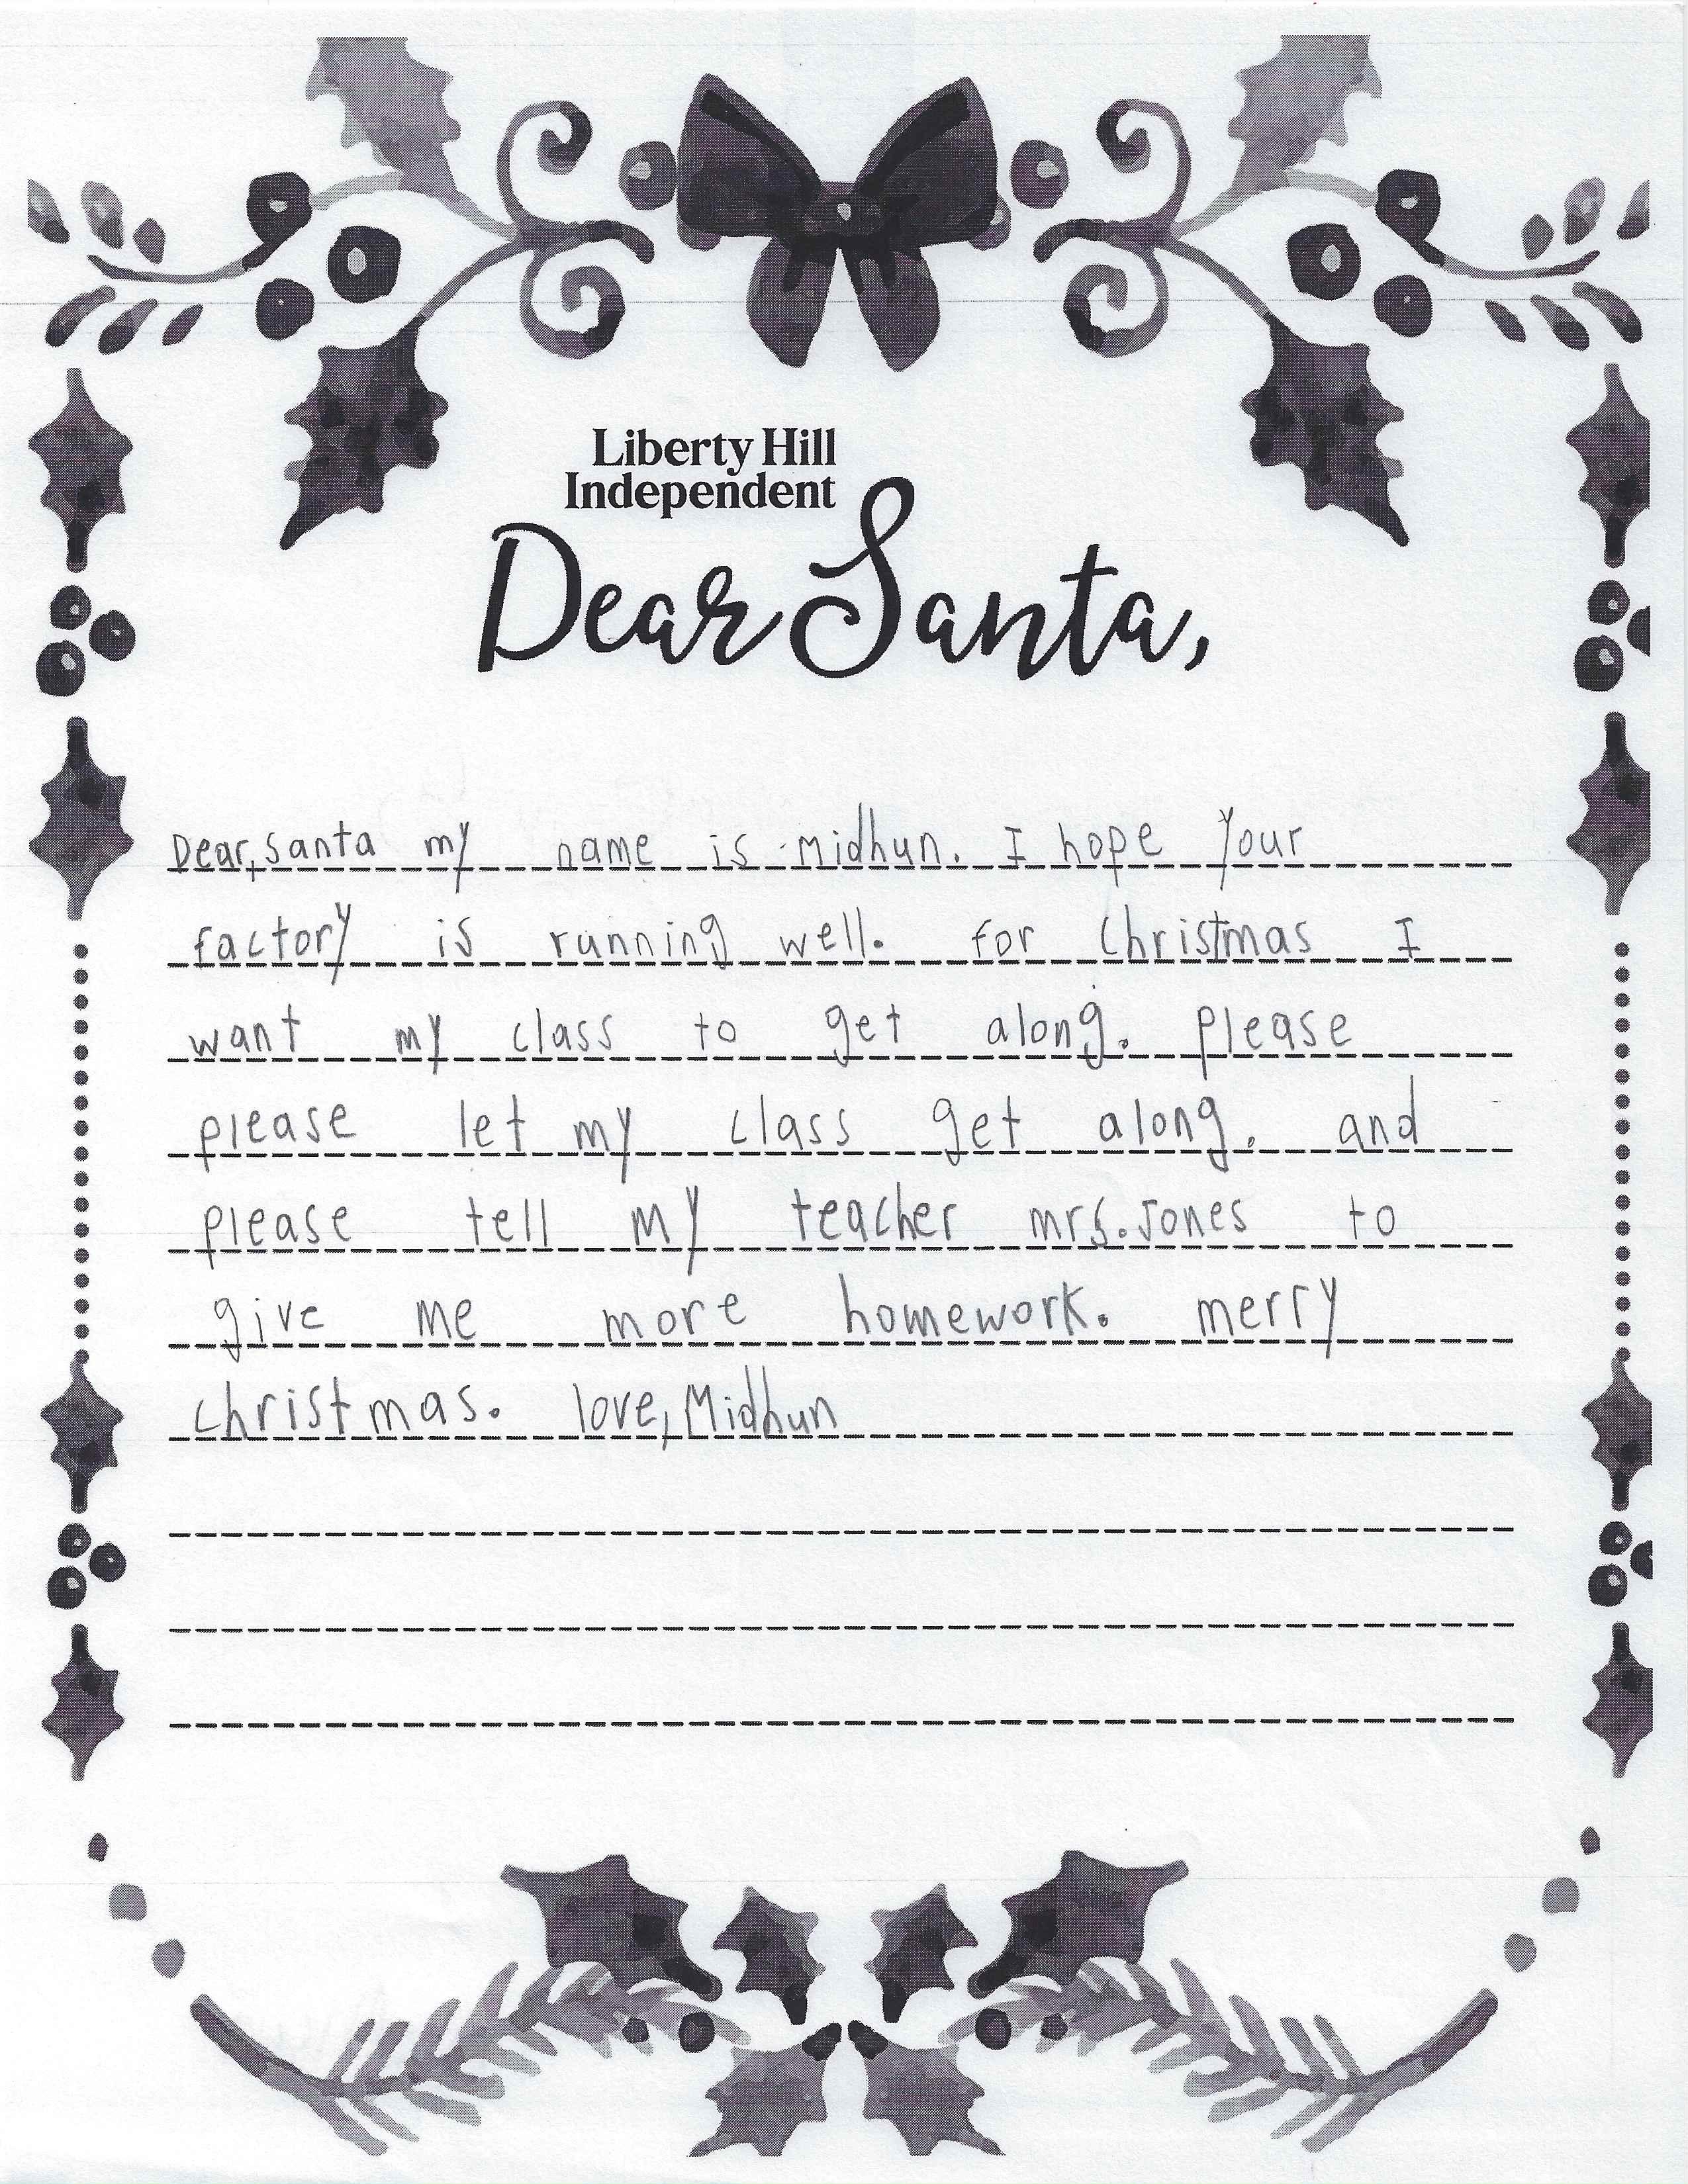 Liberty Hill
Independent
Dear Santa,
Dear, Santa my name is Midhun. I hope your
factory is running well. for Christmas I
want my class to get along. please
please let my class get along. and
please tell my teacher mrs. Jones to
give me more homework. merry
christmas. love, Midhun